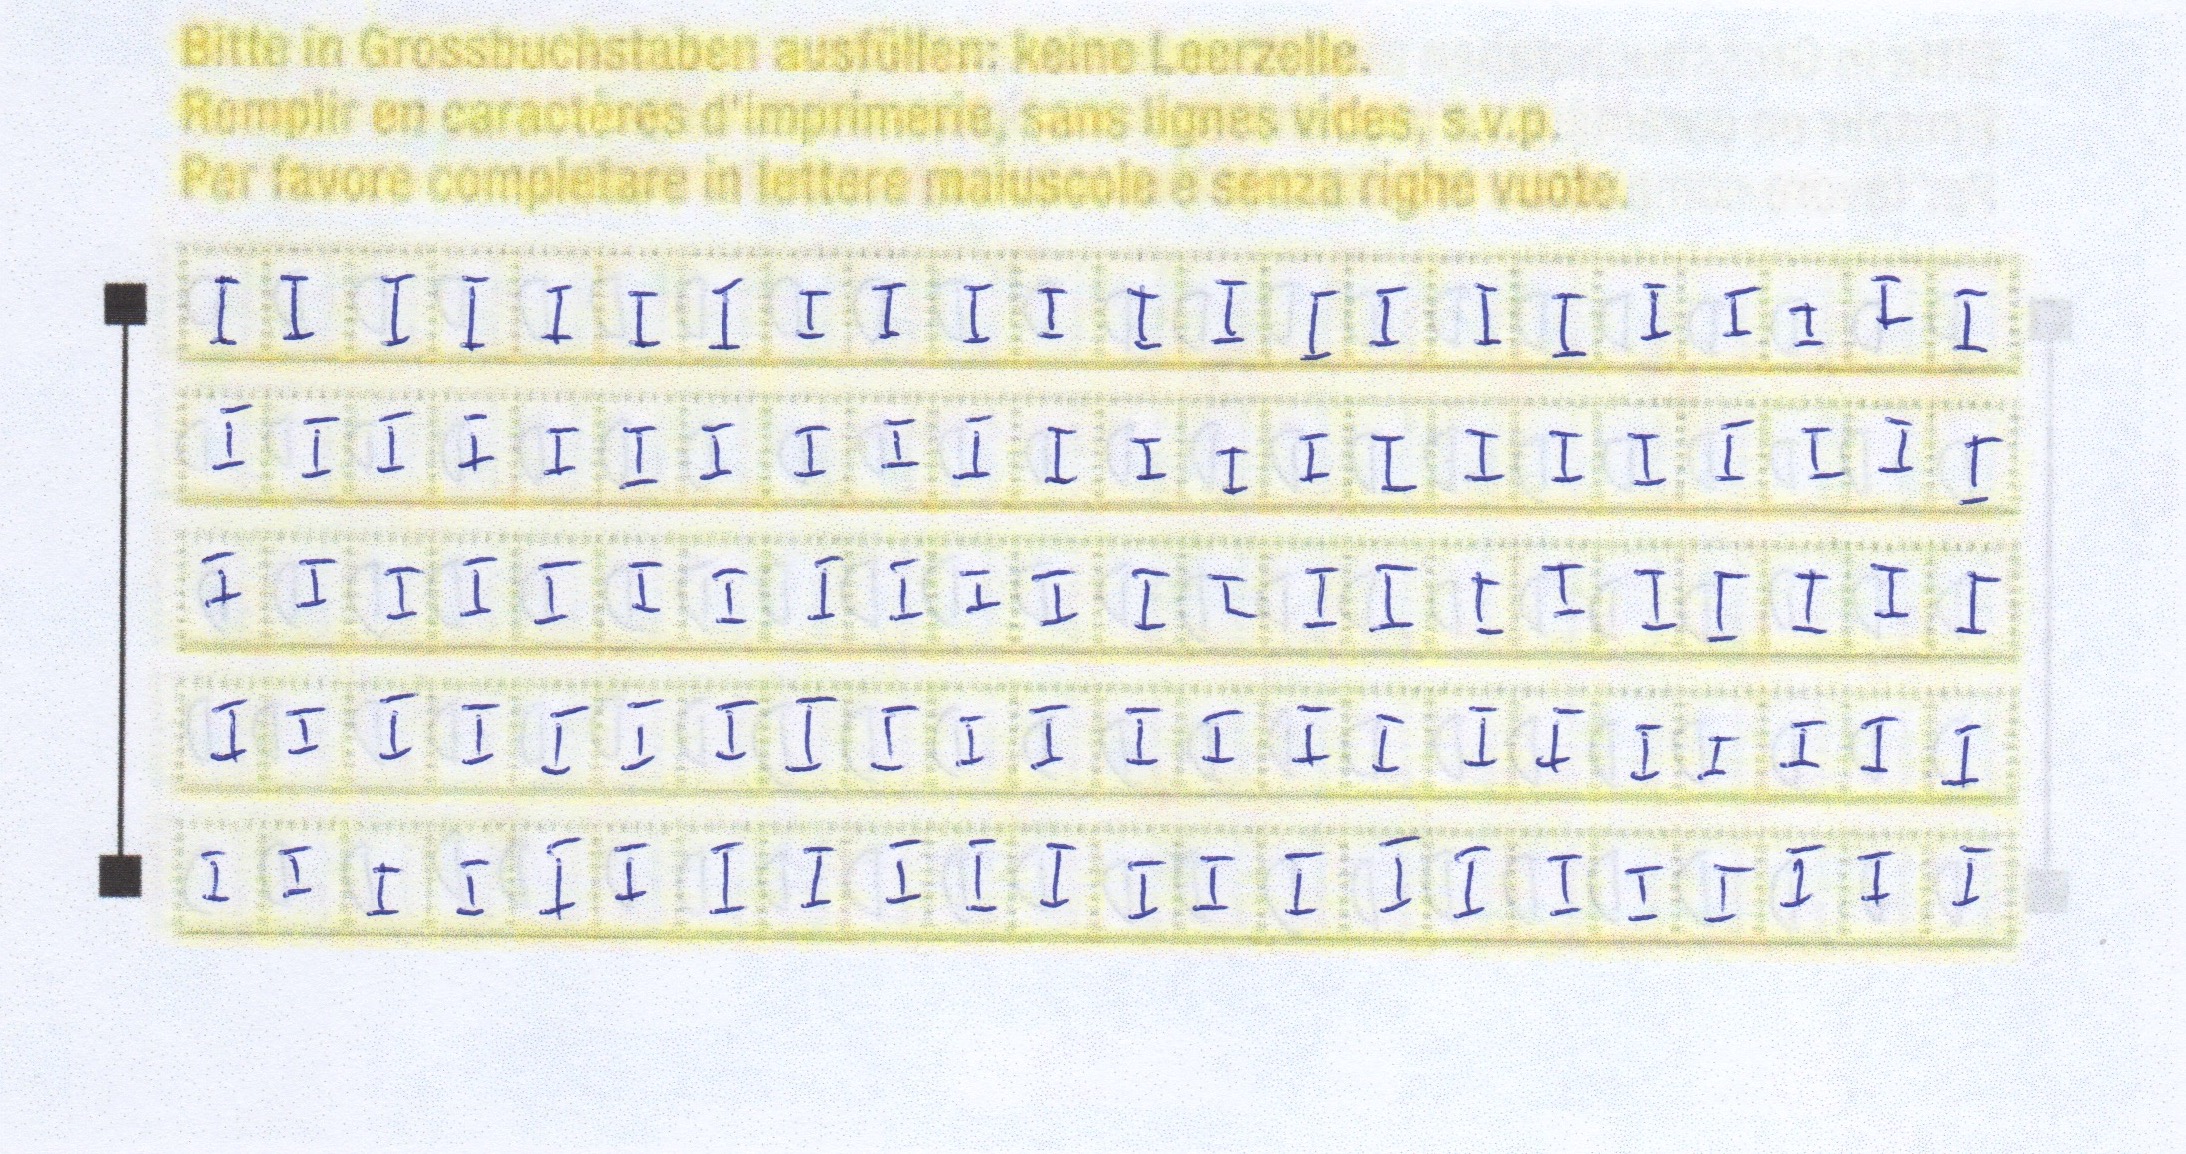 Bitte in Grossbuchstaben ausfüllen: keine Leerzeile.
Remplir en caractères d'imprimerie, sans lignes vides, s.v.p.
Per favore completare in lettere maiuscole e senza righe vuote.
I I I I I I I I I I I I I I I I I I I I I I
I I I I I I I I I I I I I I I I I I I I I I
I I I I I I I I I I I I I I I I I I I I I I
I I I I I I I I I I I I I I I I I I I I I I
I I I I I I I I I I I I I I I I I I I I I I